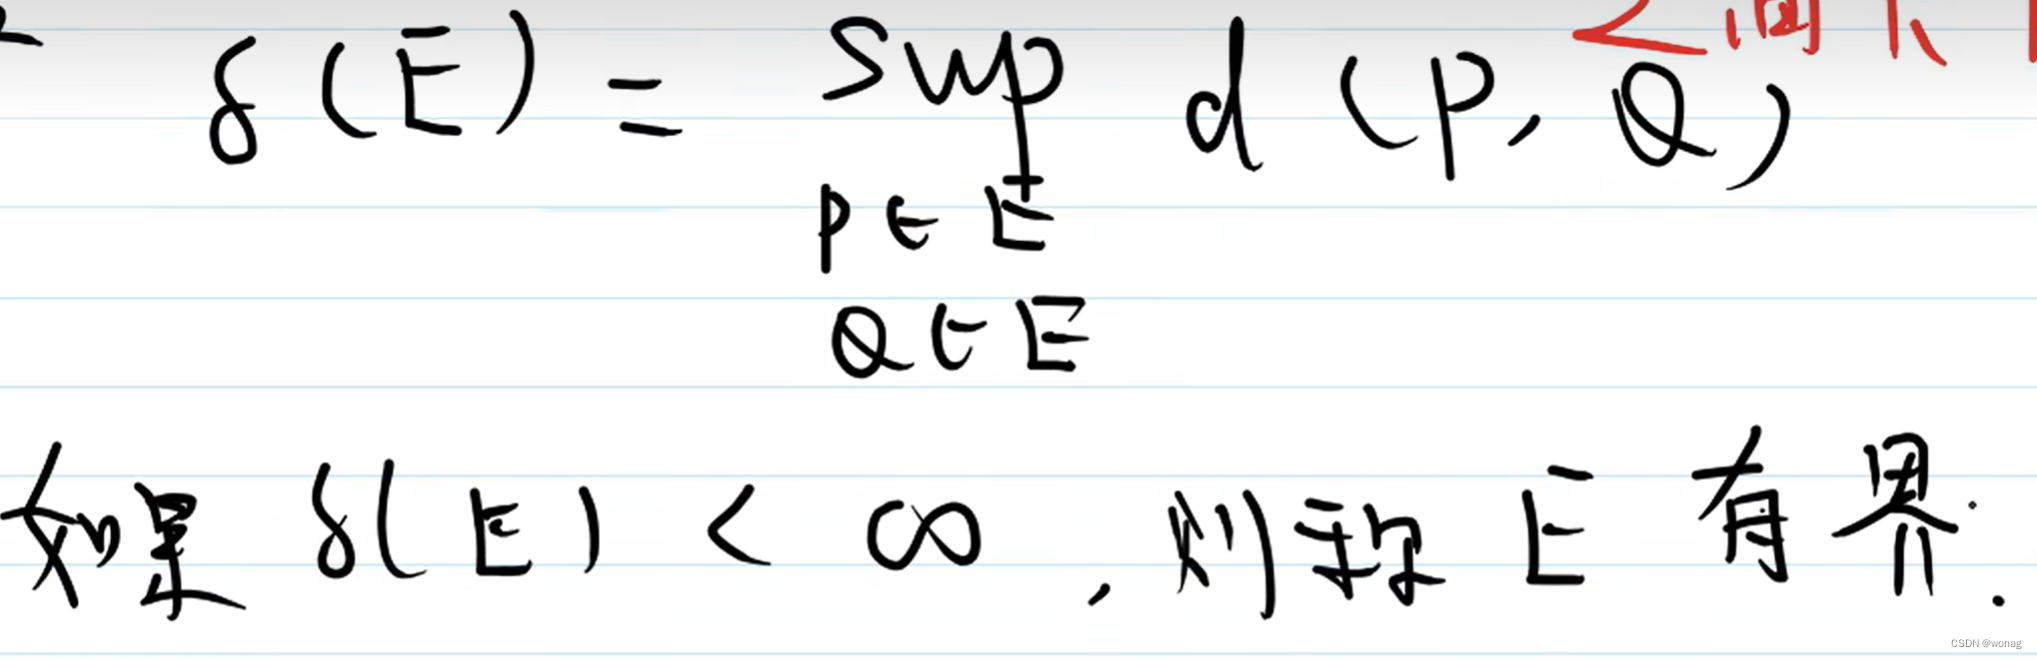 δ(E) = sup d(P, Q)
P∈E
Q∈E
如果 δ(E) < ∞, 则称 E 有界.
CSDN @wonag